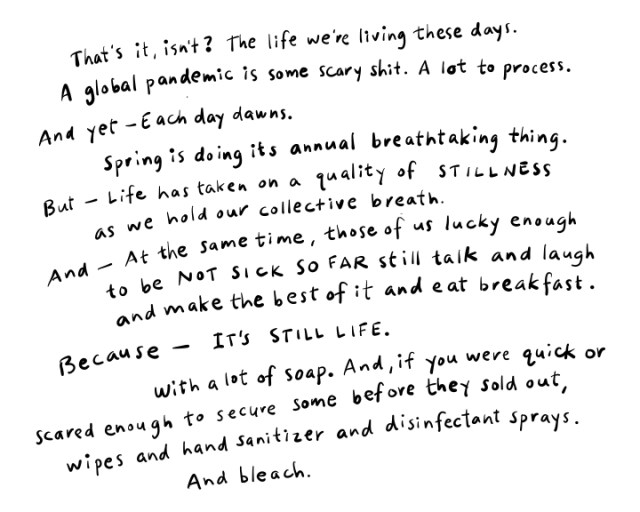 That's it, isn't? The life we're living these days.
A global pandemic is some scary shit. A lot to process.
And yet – Each day dawns.
Spring is doing its annual breathtaking thing.
But – Life has taken on a quality of STILLNESS
as we hold our collective breath.
And – At the same time, those of us lucky enough
to be NOT SICK SO FAR still talk and laugh
and make the best of it and eat breakfast.
Because – IT'S STILL LIFE.
with a lot of soap. And, if you were quick or
scared enough to secure some before they sold out,
wipes and hand sanitizer and disinfectant sprays.
And bleach.